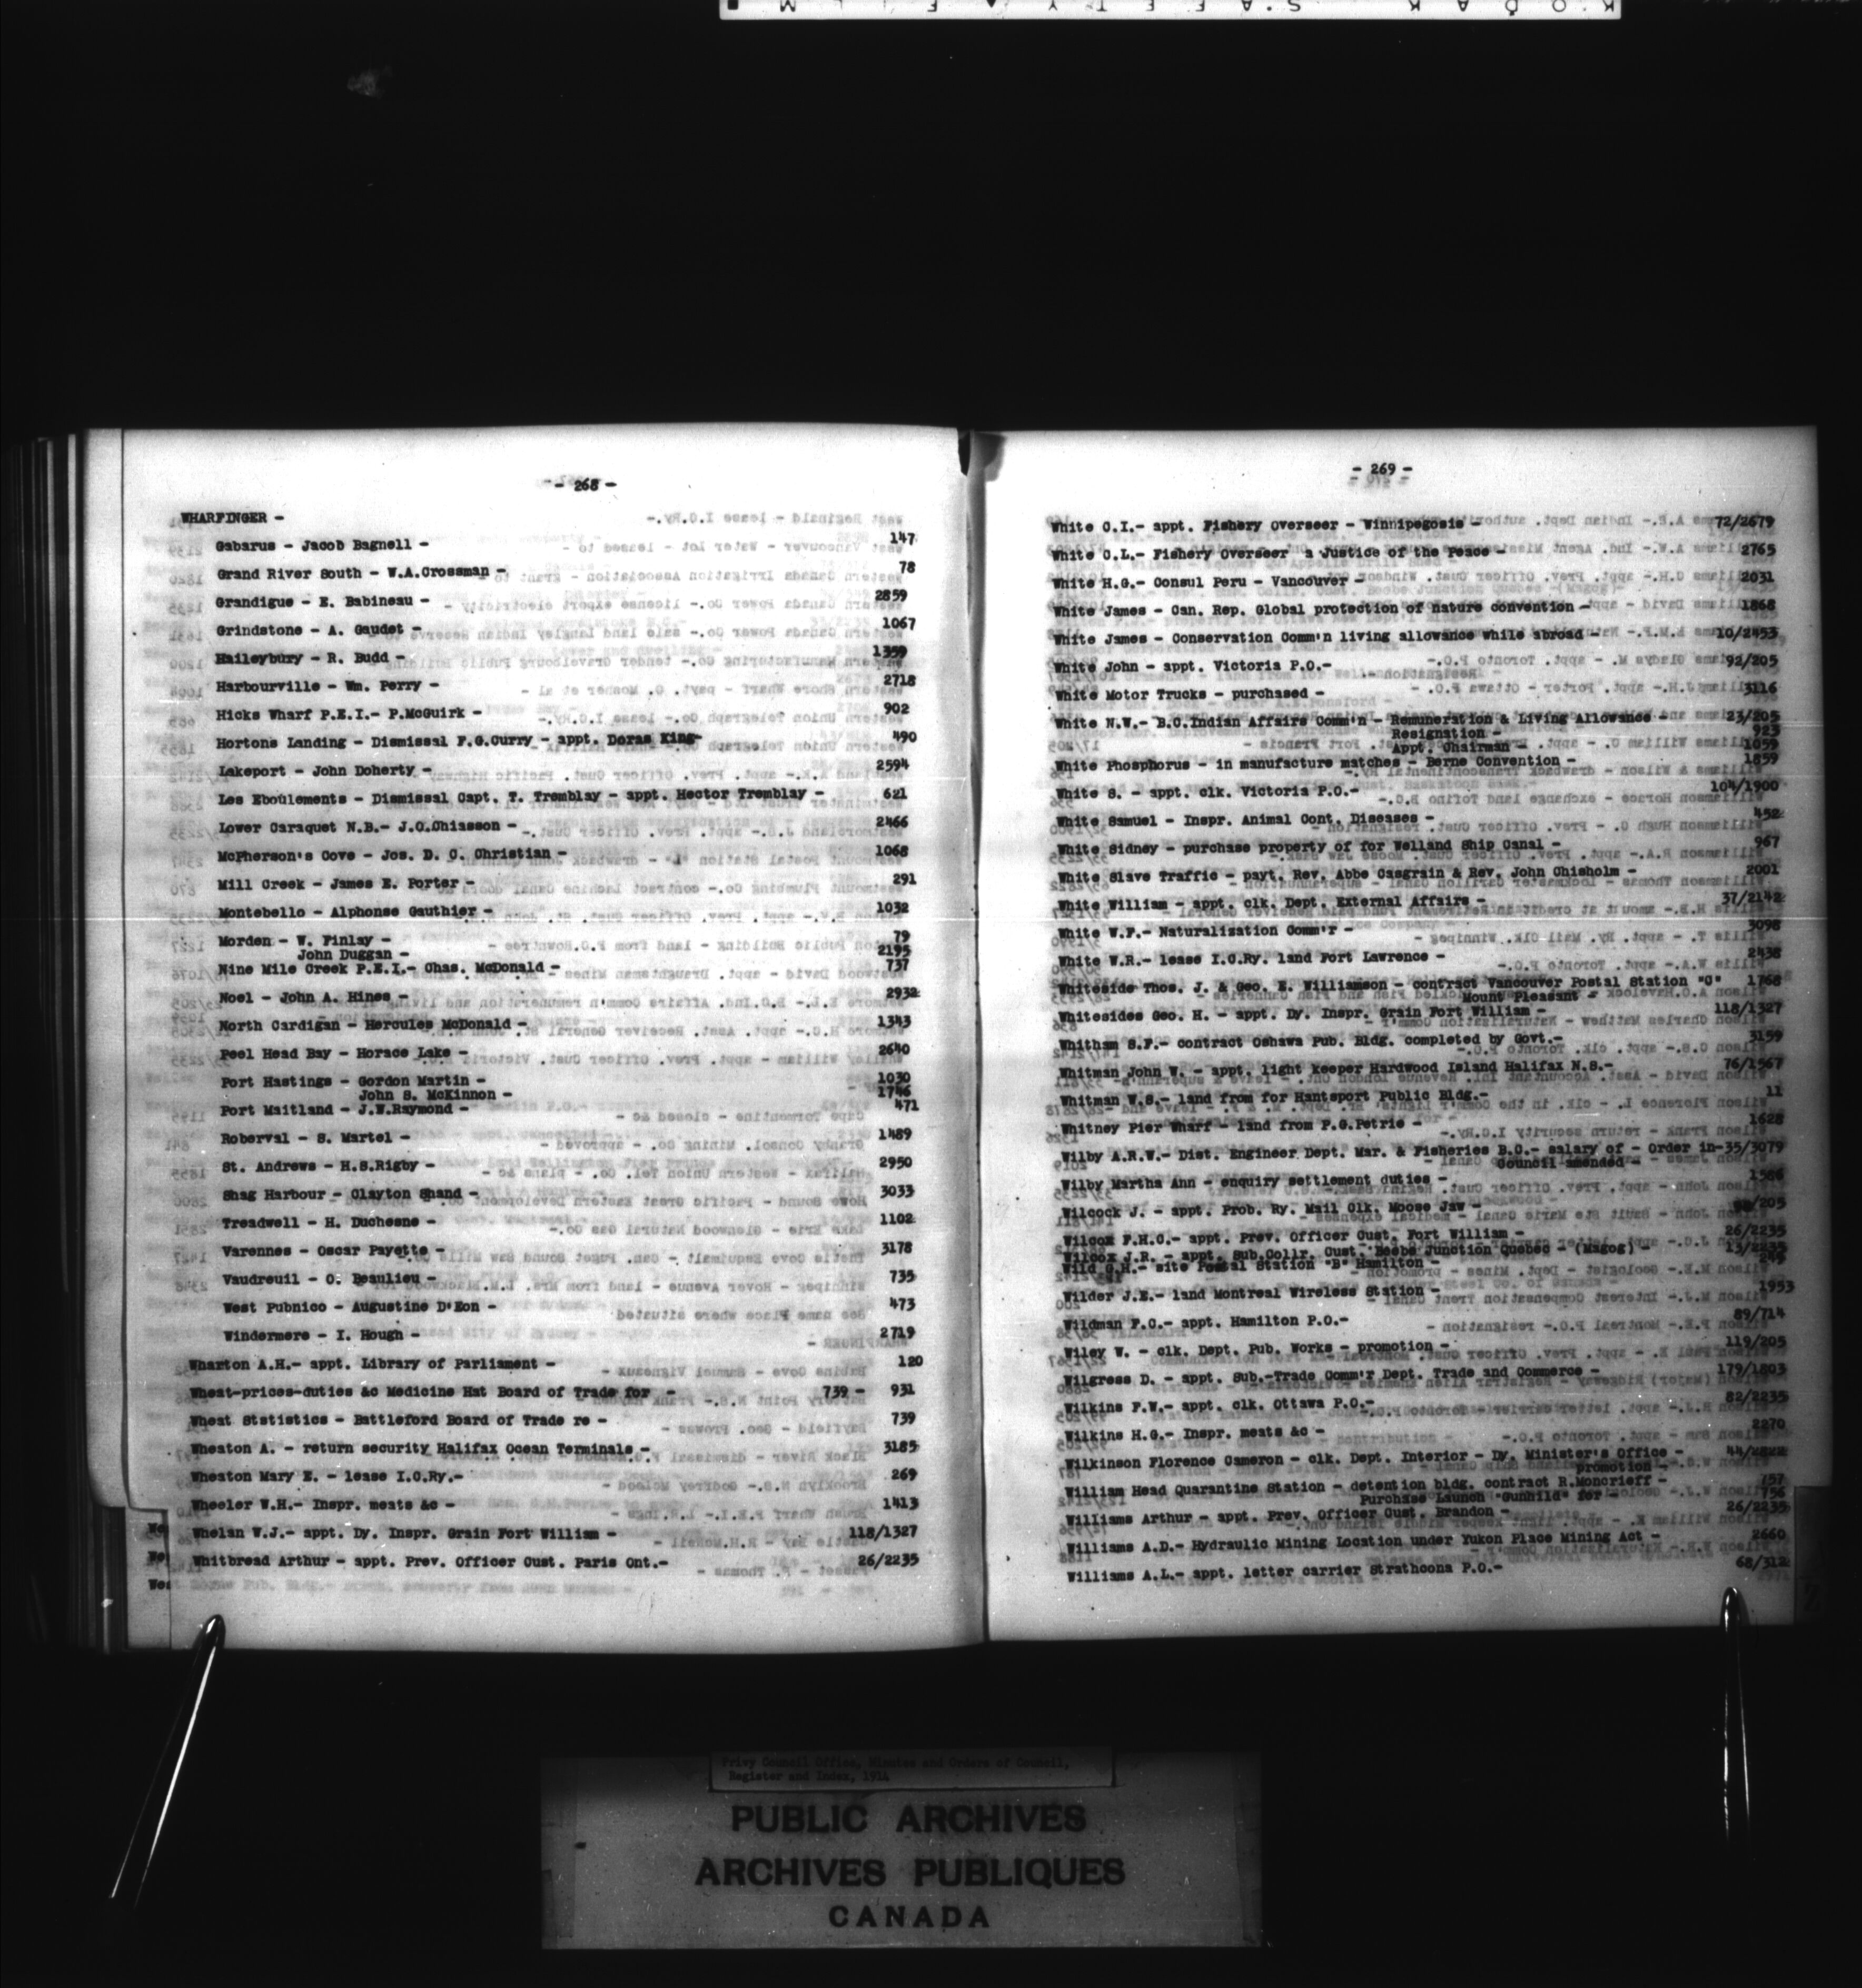 - 268 -
WHARFINGER -
Gabarus - Jacob Bagnell - 147
Grand River South - W.A.Crossman - 78
Grandigue - E. Babineau - 2859
Grindstone - A. Gaudet - 1067
Haileybury - R. Budd - 1359
Harbourville - Wm. Perry - 2718
Hicks Wharf P.E.I.- P.McGuirk - 902
Hortons Landing - Dismissal F.G.Curry - appt. Doras King- 490
Lakeport - John Doherty - 2594
Les Eboulements - Dismissal Capt. T. Tremblay - appt. Hector Tremblay - 621
Lower Caraquet N.B.- J.C.Chiasson - 2466
McPherson's Cove - Jos. D. C. Christian - 1068
Mill Creek - James E. Porter - 291
Montebello - Alphonse Gauthier - 1032
Morden - W. Finlay - 79
John Duggan - 2195
Nine Mile Creek P.E.I.- Chas. McDonald - 737
Noel - John A. Hines - 2932
North Cardigan - Hercules McDonald - 1343
Peel Head Bay - Horace Lake - 2640
Port Hastings - Gordon Martin - 1030
John S. McKinnon - 1746
Port Maitland - J.W.Raymond - 471
Roberval - S. Martel - 1489
St. Andrews - H.S.Rigby - 2950
Shag Harbour - Clayton Shand - 3033
Treadwell - H. Duchesne - 1102
Varennes - Oscar Payette - 3178
Vaudreuil - O. Beaulieu - 735
West Pubnico - Augustine D'Eon - 473
Windermere - I. Hough - 2719
Wharton A.H.- appt. Library of Parliament - 120
Wheat-prices-duties &c Medicine Hat Board of Trade for - 739 - 931
Wheat Statistics - Battleford Board of Trade re - 739
Wheaton A. - return security Halifax Ocean Terminals - 3185
Wheaton Mary E. - lease I.C.Ry.- 269
Wheeler W.H.- Inspr. meats &c - 1413
Whelan W.J.- appt. Dy. Inspr. Grain Fort William - 118/1327
Whitbread Arthur - appt. Prev. Officer Cust. Paris Ont.- 26/2235
- 269 -
White C.I.- appt. Fishery Overseer - Winnipegosis - 72/2679
White C.L.- Fishery Overseer a Justice of the Peace - 2765
White H.G.- Consul Peru - Vancouver - 2031
White James - Can. Rep. Global protection of nature convention - 1868
White James - Conservation Comm'n living allowance while abroad - 10/2453
White John - appt. Victoria P.O.- 92/205
White Motor Trucks - purchased - 3116
White N.W.- B.C.Indian Affairs Comm'n - Remuneration & Living Allowance - 23/205
Resignation - 923
Appt. Chairman - 1059
White Phosphorus - in manufacture matches - Berne Convention - 1859
White S. - appt. clk. Victoria P.O.- 104/1900
White Samuel - Inspr. Animal Cont. Diseases - 452
White Sidney - purchase property of for Welland Ship Canal - 967
White Slave Traffic - payt. Rev. Abbe Casgrain & Rev. John Chisholm - 2001
White William - appt. clk. Dept. External Affairs - 37/2142
White W.F.- Naturalization Comm'r - 3098
White W.R.- lease I.C.Ry. land Fort Lawrence - 2438
Whiteside Thos. J. & Geo. E. Williamson - contract Vancouver Postal Station "C" 1768
Mount Pleasant -
Whitesides Geo. H. - appt. Dy. Inspr. Grain Fort William - 118/1327
Whitham S.F.- contract Oshawa Pub. Bldg. completed by Govt.- 3159
Whitman John W. - appt. light keeper Hardwood Island Halifax N.S.- 76/1567
Whitman W.S.- land from for Hantsport Public Bldg.- 11
Whitney Pier Wharf - land from P.G.Petrie - 1628
Wilby A.R.W.- Dist. Engineer Dept. Mar. & Fisheries B.C.- salary of - Order in-35/3079
Council amended -
Wilby Martha Ann - enquiry settlement duties - 1586
Wilcock J. - appt. Prob. Ry. Mail Clk. Moose Jaw - /205
Wilcox F.H.C.- appt. Prev. Officer Cust. Fort William - 26/2235
Wilcox J.R. - appt. Sub.Collr. Cust. Beebe Junction Quebec - (Magog) - 13/2235
Wild G.H.- site Postal Station "B" Hamilton -
Wilder J.E.- land Montreal Wireless Station - 1953
Wildman F.C.- appt. Hamilton P.O.- 89/714
Wiley W. - clk. Dept. Pub. Works - promotion - 119/205
Wilgress D. - appt. Sub.-Trade Comm'r Dept. Trade and Commerce - 179/1803
Wilkins F.W.- appt. clk. Ottawa P.O.- 82/2235
Wilkins H.G.- Inspr. meats &c - 2270
Wilkinson Florence Cameron - clk. Dept. Interior - Dy. Minister's Office -
promotion -
William Head Quarantine Station - detention bldg. contract R.Moncrieff - 757
Purchase Launch "Gunhild" for - 756
Williams Arthur - appt. Prev. Officer Cust. Brandon - 26/2235
Williams A.D.- Hydraulic Mining Location under Yukon Place Mining Act - 2660
Williams A.L.- appt. letter carrier Strathcona P.O.- 68/312
Privy Council Office, Minutes and Orders of Council,
Register and Index, 1914
PUBLIC ARCHIVES
ARCHIVES PUBLIQUES
CANADA